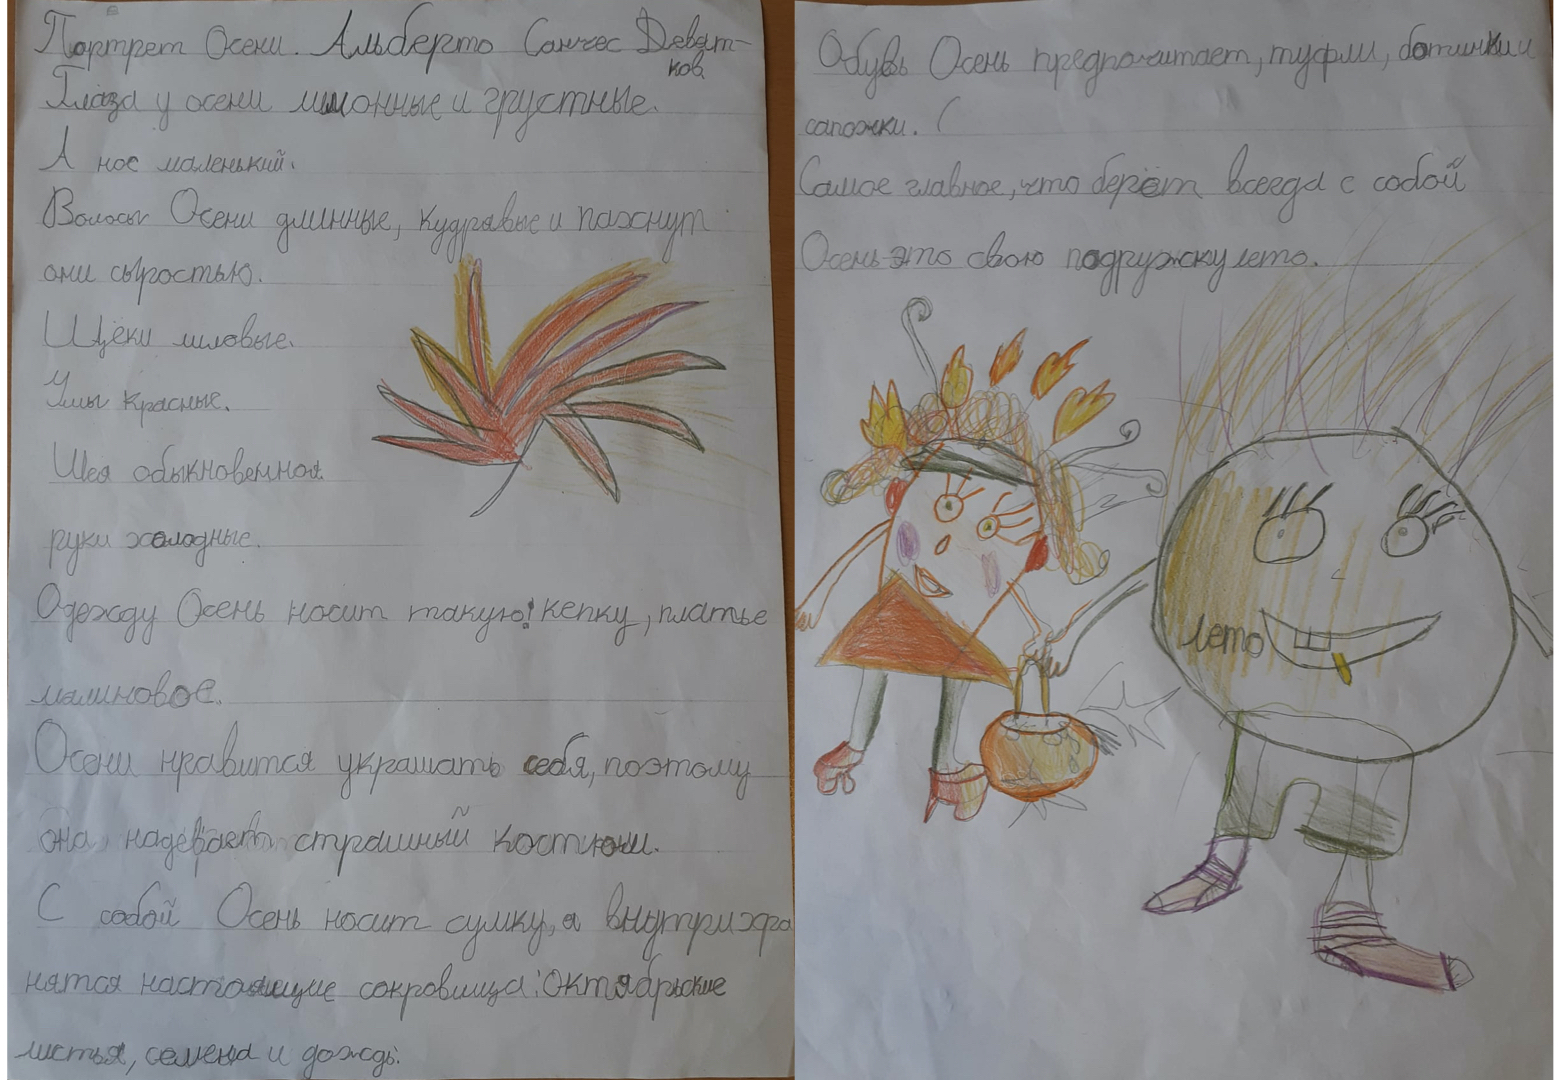 Портрет Осени. Альберто Санчес Девят-
ков
Глаза у осени лимонные и грустные.
А нос маленький.
Волосы Осени длинные, кудрявые и пахнут
они сыростью.
Щёки лиловые.
Ушы красные.
Шея обыкновенная.
руки холодные.
Одежду Осень носит такую! кепку, платье
малиновое.
Осени нравится украшать себя, поэтому
она надевает страшный костюм.
С собой Осень носит сумку, а внутри хра
нятся настоящие сокровища: октябрьские
листья, семена и дождь.
Обувь Осень предпочитает, туфли, ботинки и
сапожки. (
Самое главное, что берёт всегда с собой
Осень это свою подружку лето.
лето